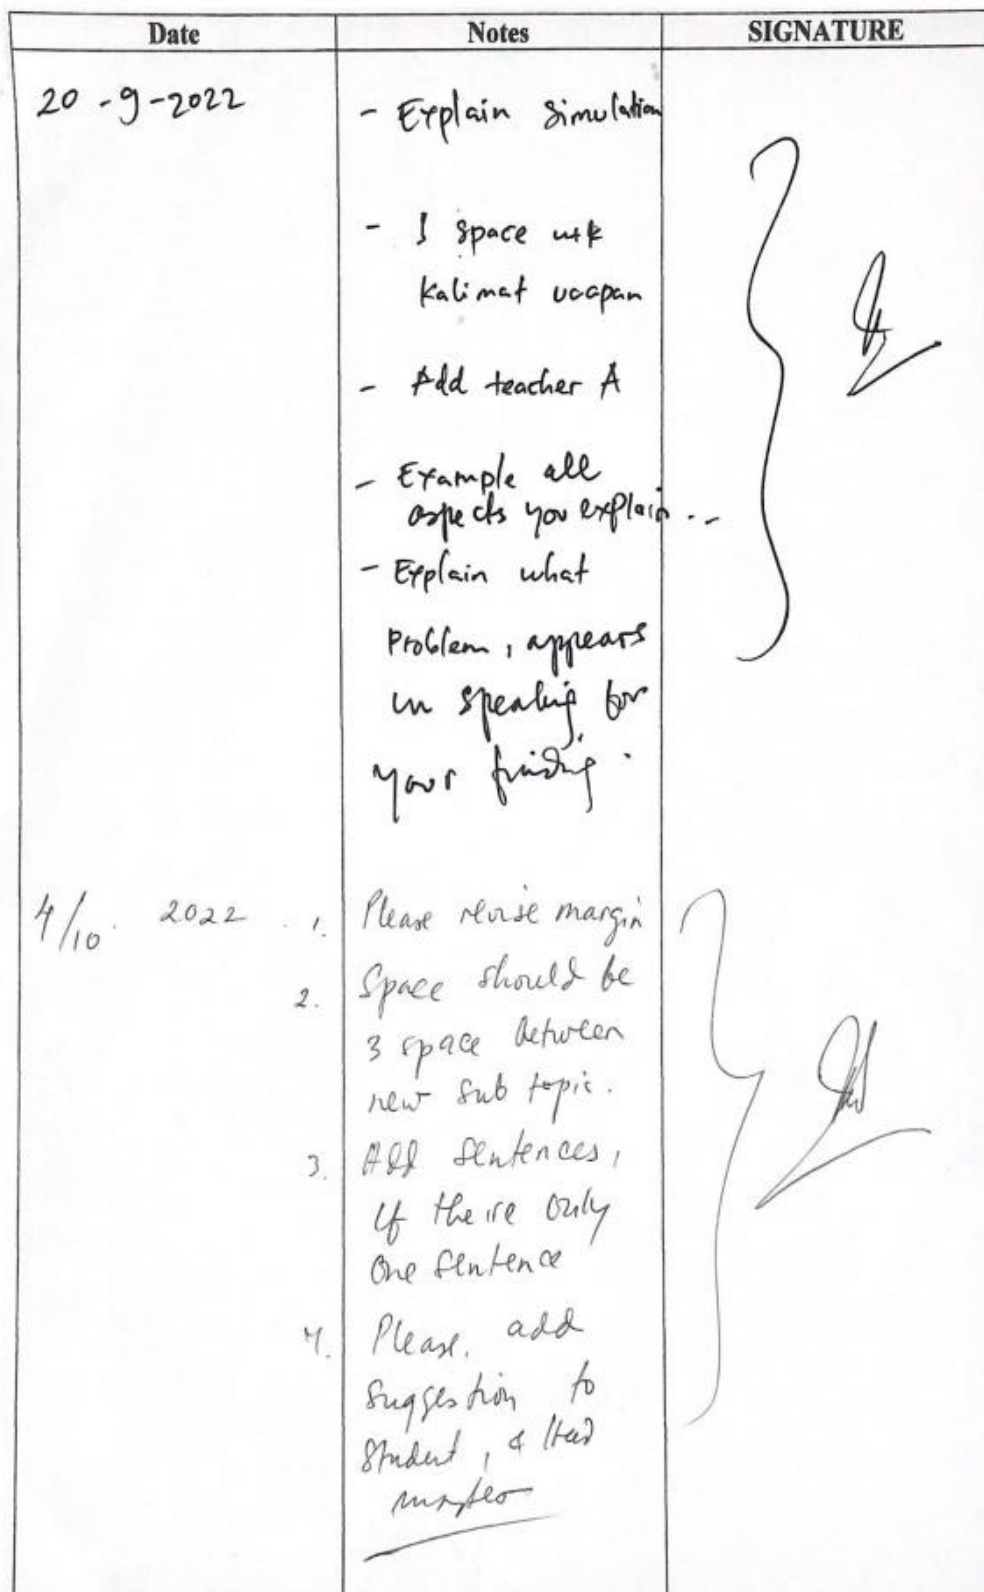 Date Notes SIGNATURE
20-9-2022 - Explain simulation
- 1 space utk
kalimat ucapan
- Add teacher A
- Example all
aspects you explain ..
- Explain what
Problem, appears
in speaking for
your finding.
4/10. 2022 1. Please revise margin
2. Space should be
3 space between
new sub topic.
3. Add sentences,
if there only
one sentence
4. Please, add
suggestion to
student, & Head